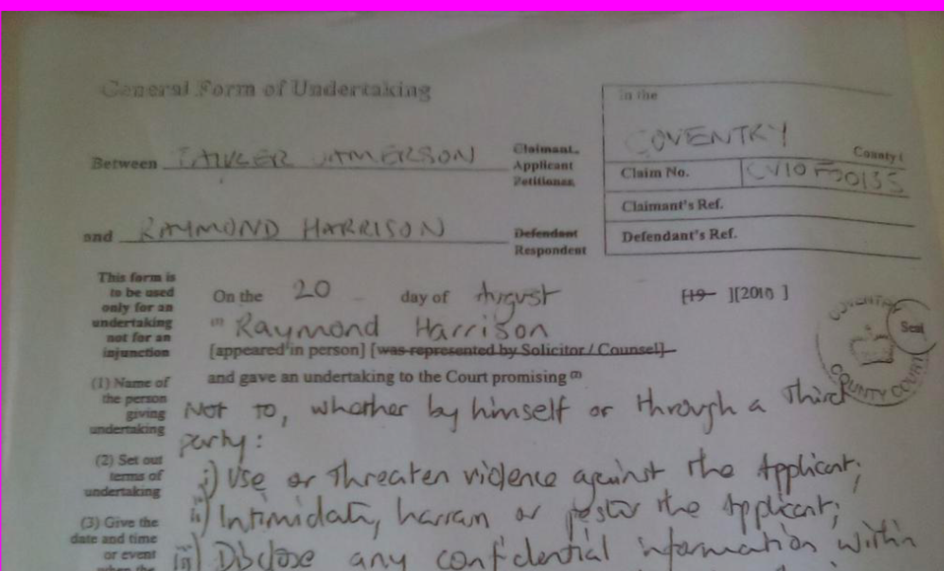 General Form of Undertaking
In the
COVENTRY
County
Between JAMERSON Claimant Applicant Petitioner
Claim No. CV10F00135
Claimant's Ref.
and RAYMOND HARRISON Defendant Respondent
Defendant's Ref.
This form is
to be used
only for an
undertaking
not for an
injunction
On the 20 day of August [19 ][2010 ]
(1) Raymond Harrison
[appeared in person] [was represented by Solicitor / Counsel]
and gave an undertaking to the Court promising (2)
COVENTRY
COUNTY COURT
Seal
(1) Name of
the person
giving
undertaking
Not to, whether by himself or through a third
party:
(2) Set out
terms of
undertaking
i) Use or threaten violence against the Applicant;
ii) Intimidate, harass or pester the Applicant;
(3) Give the
date and time
or event
when the
iii) Disclose any confidential information within